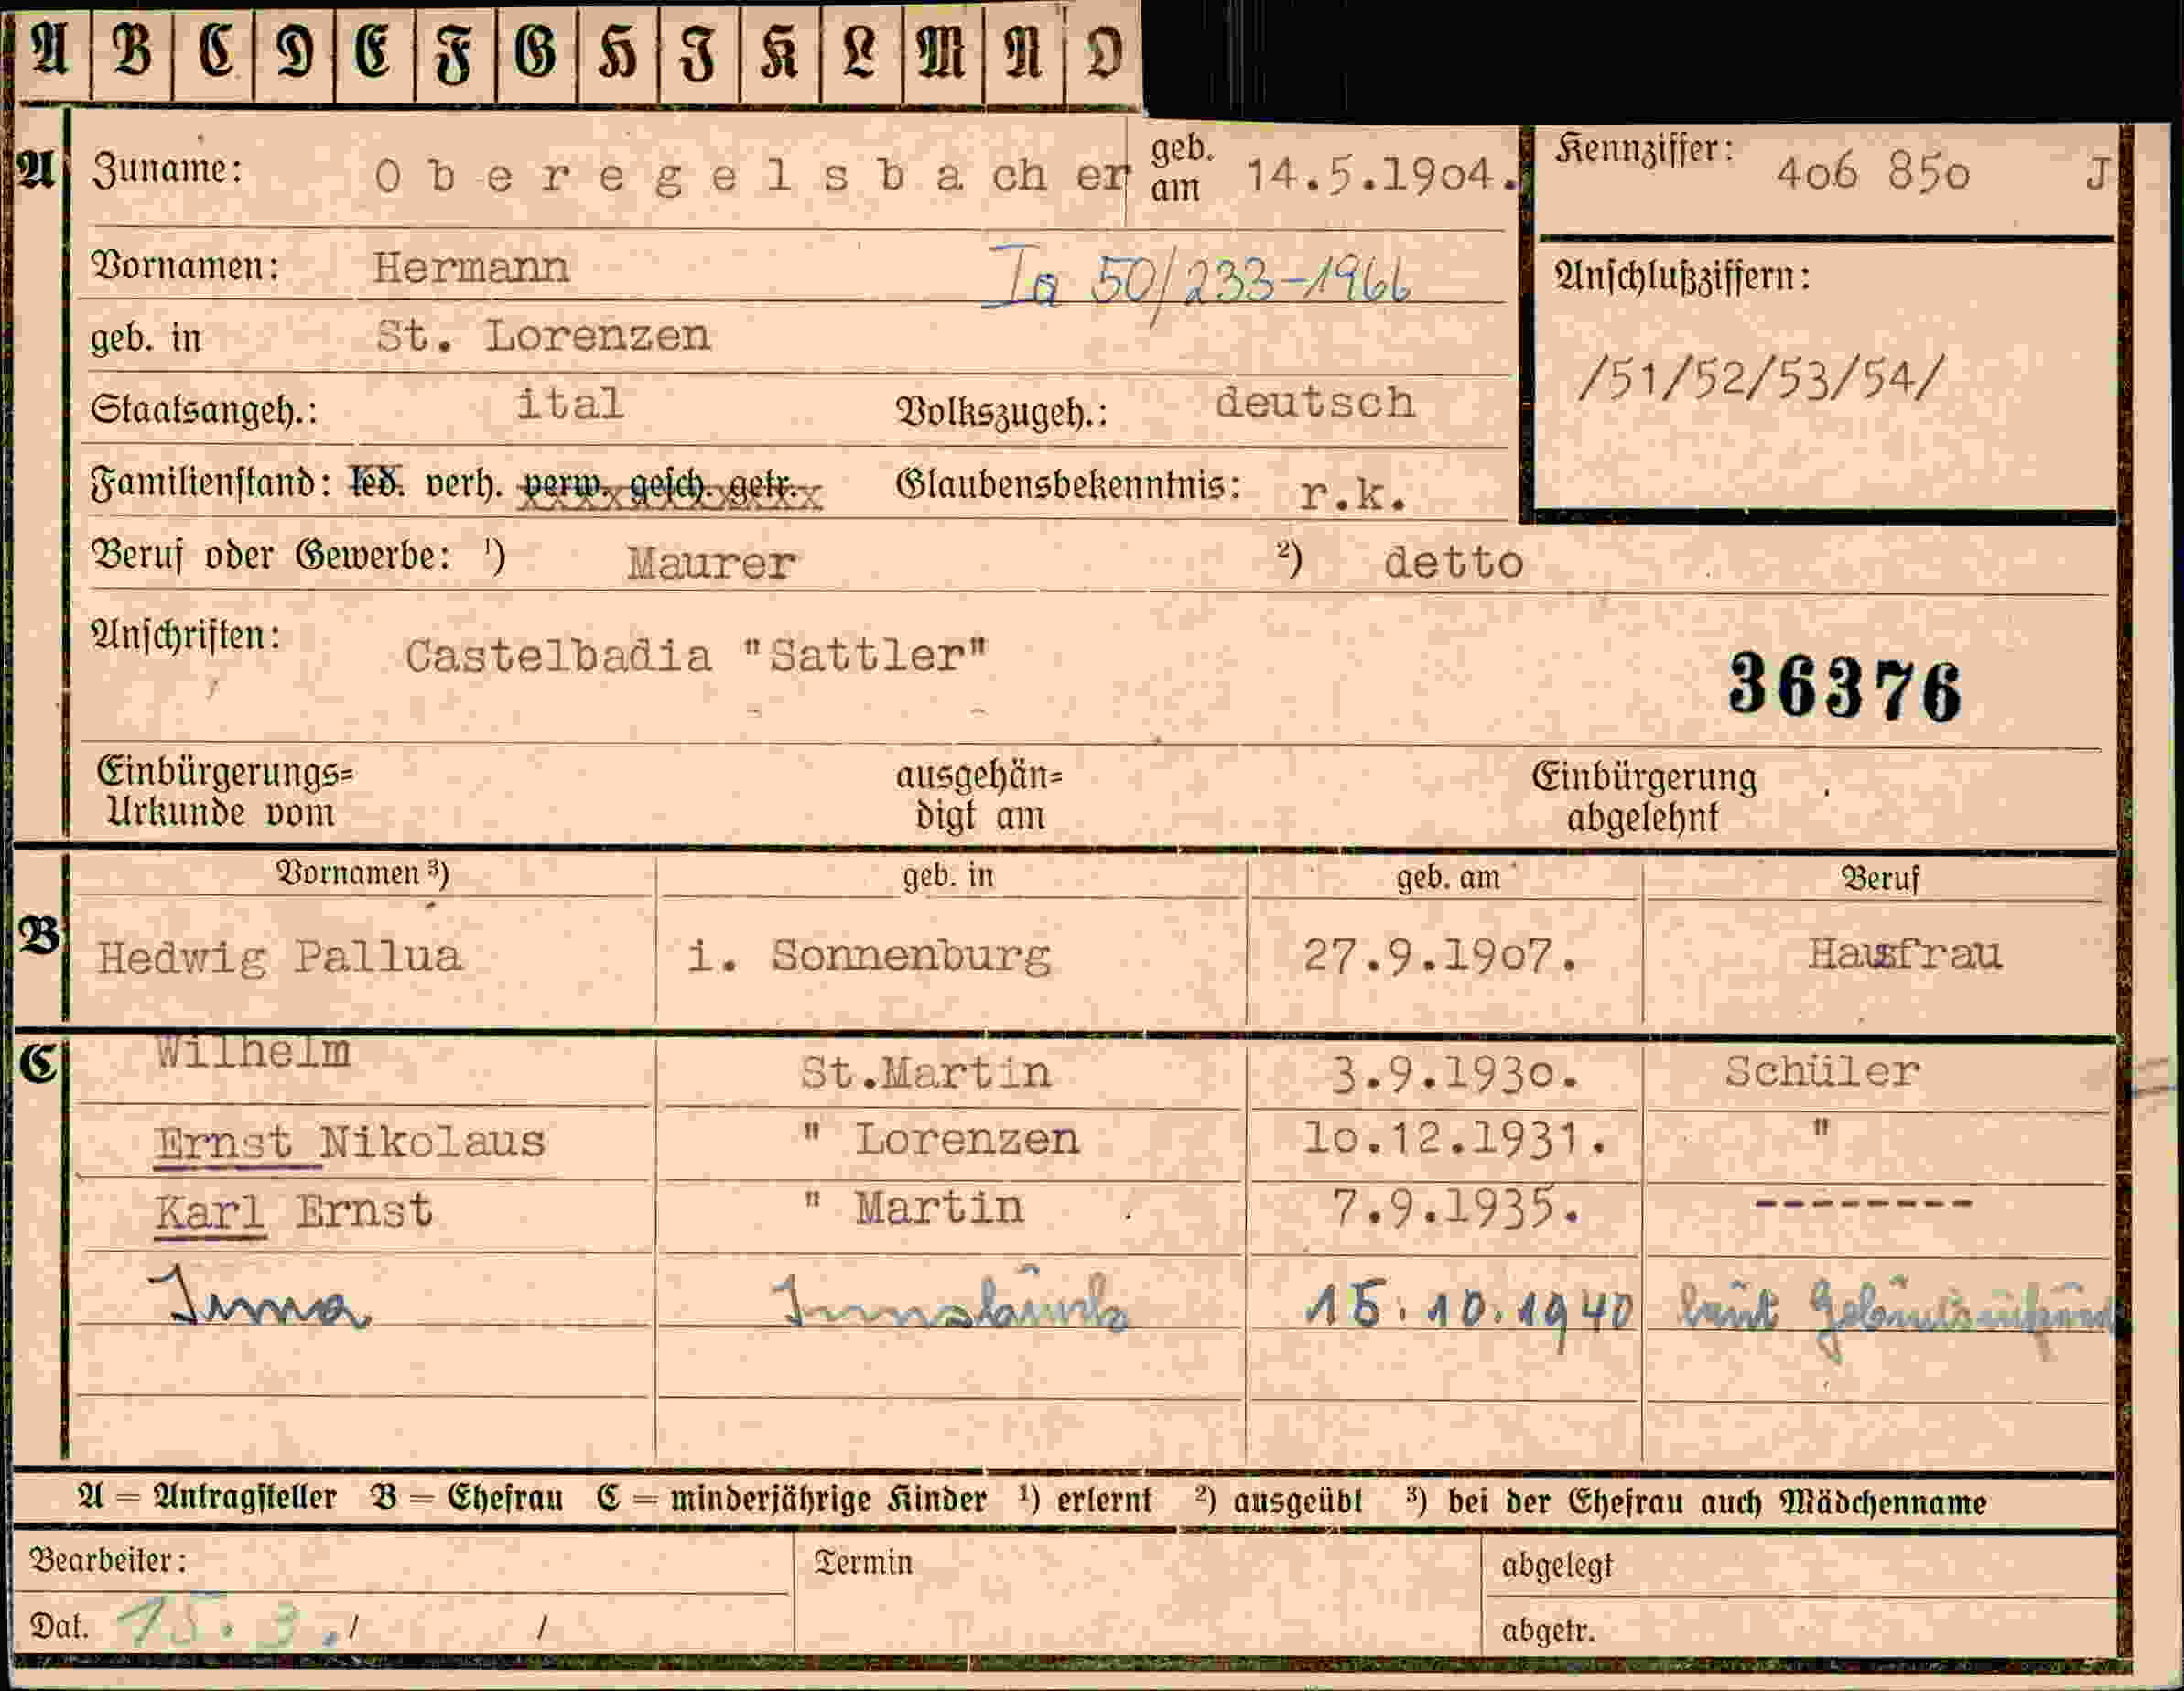 A B C D E F G H J K L M N O
A Zuname: Oberegelsbacher geb. am 14.5.1904. Kennziffer: 406 850 J
Vornamen: Hermann Ia 50/233-1966 Anschlußziffern:
geb. in St. Lorenzen
/51/52/53/54/
Staatsangeh.: ital Volkszugeh.: deutsch
Familienstand: led. verh. verw. gesch. getr. Glaubensbekenntnis: r.k.
Beruf oder Gewerbe: 1) Maurer 2) detto
Anschriften: Castelbadia "Sattler"
36376
Einbürgerungs= ausgehän= Einbürgerung
Urkunde vom digt am abgelehnt
Vornamen 3) geb. in geb. am Beruf
B Hedwig Pallua i. Sonnenburg 27.9.1907. Hausfrau
C Wilhelm St.Martin 3.9.1930. Schüler
Ernst Nikolaus " Lorenzen 10.12.1931. "
Karl Ernst " Martin 7.9.1935. --------
Innsbruck 15.10.1940 laut Geburtsurkunde
A = Antragsteller B = Ehefrau C = minderjährige Kinder 1) erlernt 2) ausgeübt 3) bei der Ehefrau auch Mädchenname
Bearbeiter: Termin abgelegt
Dat. 15. 3. / / abgetr.